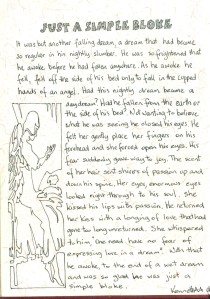 JUST A SIMPLE BLOKE
It was but another falling dream, a dream that had become
so regular in his nightly slumber. He was so frightened that
he awoke before he had fallen anywhere. As he awoke he
fell, fell off the side of his bed only to fall in the cupped
hands of an angel. Had this nightly dream become a
daydream? Had he fallen from the earth or
the side of his bed? Not wanting to believe
what he was seeing he closed his eyes. He
felt her gently place her fingers on his
forehead and she forced open his eyes. His
fear suddenly gave way to joy. The scent
of her hair sent shivers of passion up and
down his spine. Her eyes, enormous eyes
looked right through to his soul. She
kissed his lips with passion. He returned
her kiss with a longing of love that had
gone too long unreturned. She whispered
to him, "One need have no fear of
expressing love in a dream". With that
he awoke, to the end of a wet dream
and was so glad he was just a
simple bloke.